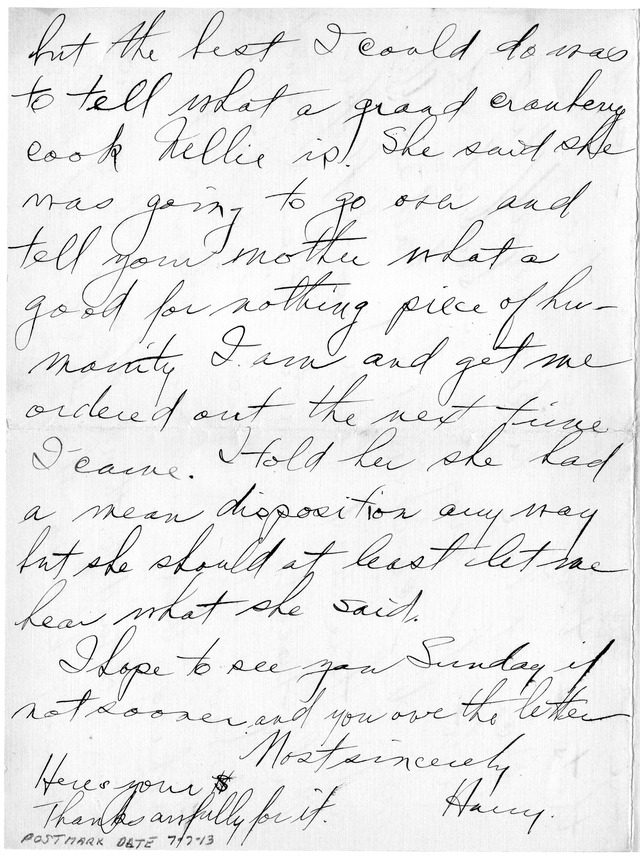 but the best I could do was
to tell what a grand cranberry
cook Nellie is. She said she
was going to go over and
tell your mother what a
good for nothing piece of hu-
manity I am and get me
ordered out the next time
I came. I told her she had
a mean disposition any way
but she should at least let me
hear what she said.
I hope to see you Sunday if
not sooner and you owe the letter
Most sincerely
Here's your $
Harry.
Thanks awfully for it.
POSTMARK DATE 7-7-13